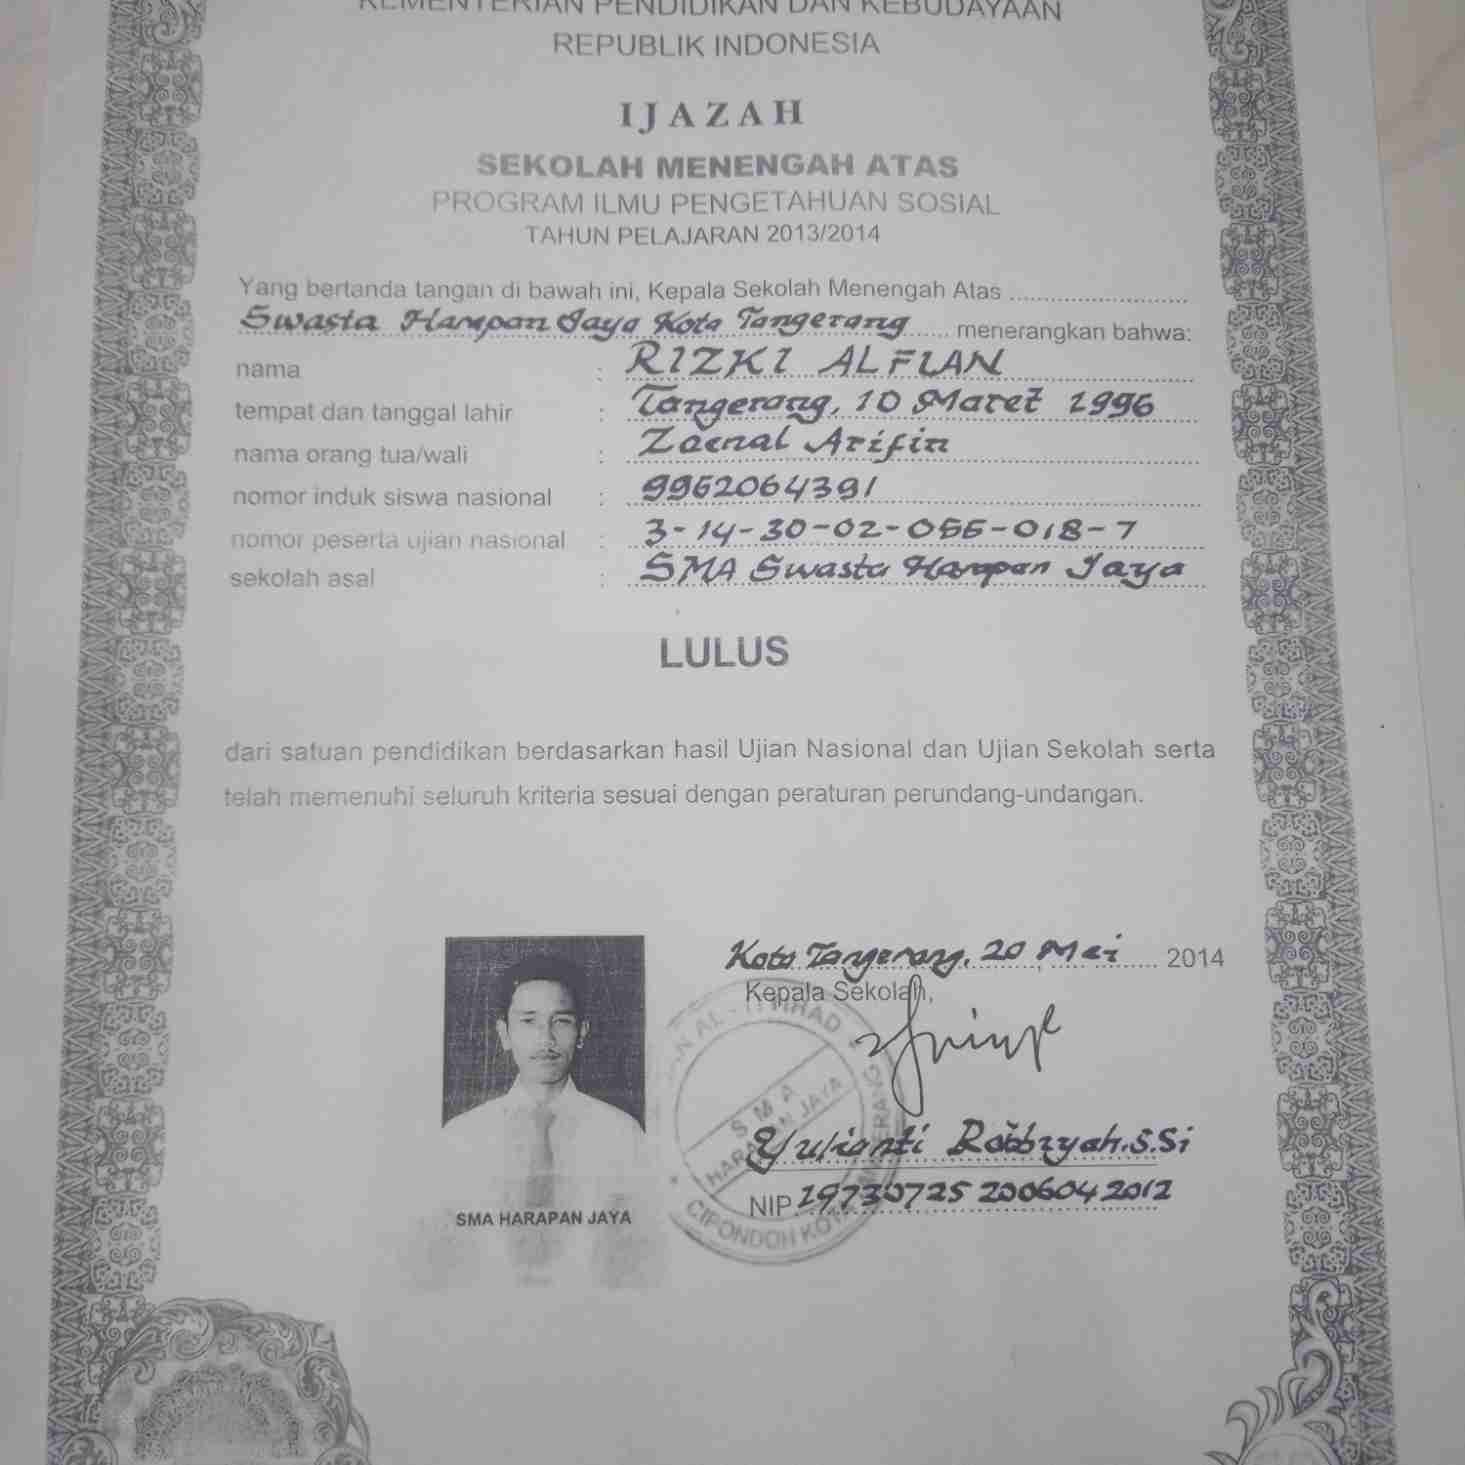 KEMENTERIAN PENDIDIKAN DAN KEBUDAYAAN
REPUBLIK INDONESIA
IJAZAH
SEKOLAH MENENGAH ATAS
PROGRAM ILMU PENGETAHUAN SOSIAL
TAHUN PELAJARAN 2013/2014
Yang bertanda tangan di bawah ini, Kepala Sekolah Menengah Atas
Swasta Harapan Jaya Kota Tangerang menerangkan bahwa:
nama : RIZKI ALFIAN
tempat dan tanggal lahir : Tangerang, 10 Maret 1996
nama orang tua/wali : Zaenal Arifin
nomor induk siswa nasional : 9962064391
nomor peserta ujian nasional : 3-14-30-02-056-018-7
sekolah asal : SMA Swasta Harapan Jaya
LULUS
dari satuan pendidikan berdasarkan hasil Ujian Nasional dan Ujian Sekolah serta
telah memenuhi seluruh kriteria sesuai dengan peraturan perundang-undangan.
Kota Tangerang, 20 Mei 2014
Kepala Sekolah,
AL-ITTIHAD
SMA
HARAPAN JAYA
CIPONDOH KOTA TANGERANG
Yulianti Robbiyah.S.Si
NIP 19730725 200604 2012
SMA HARAPAN JAYA